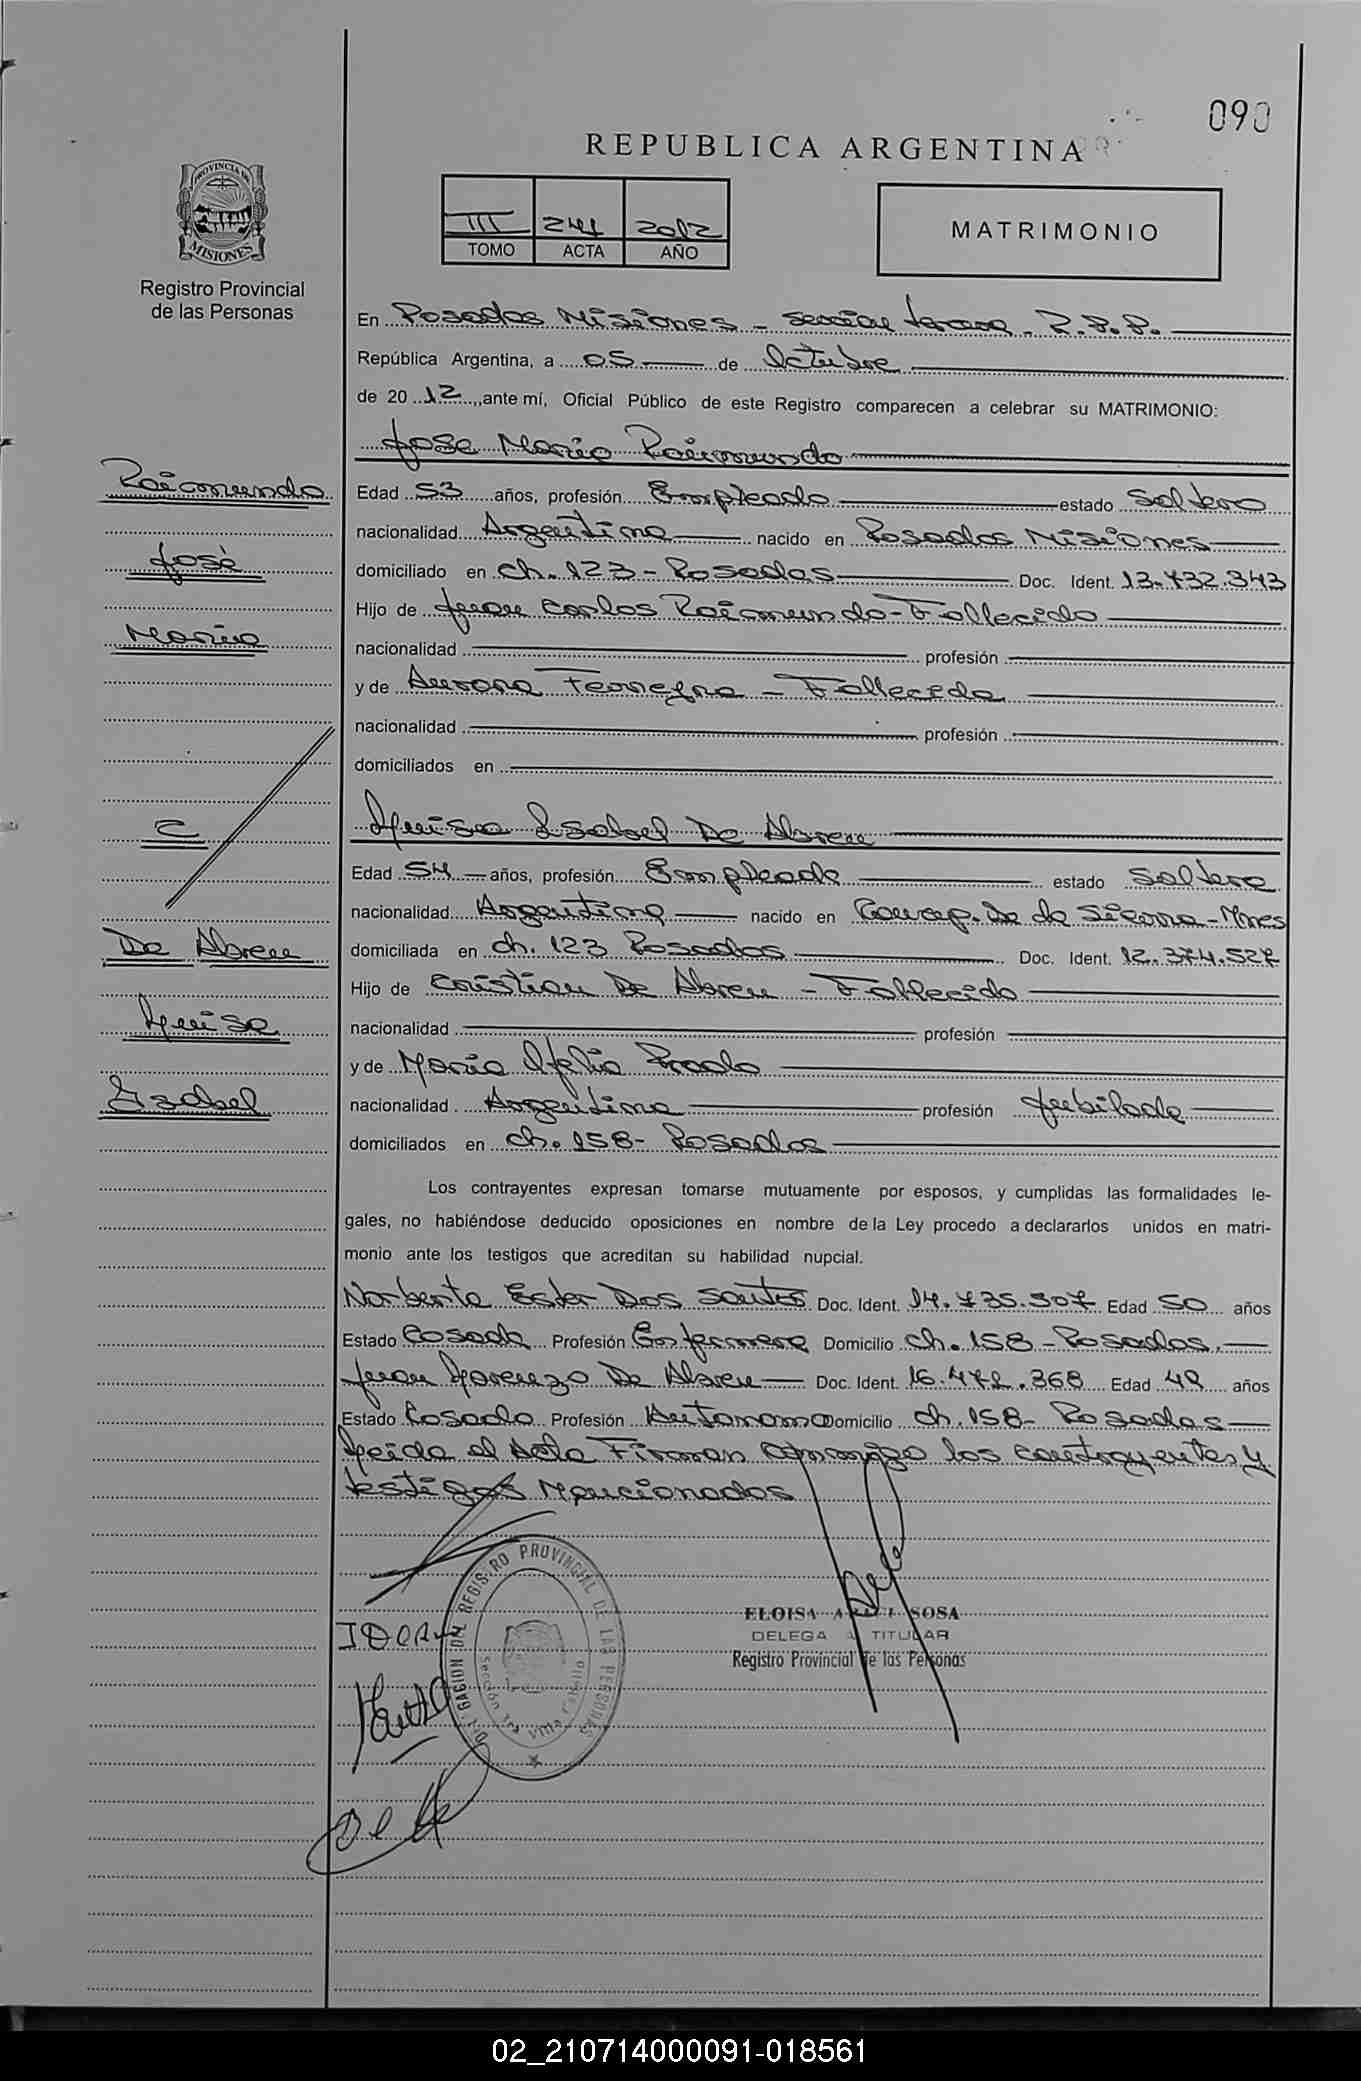 090
REPUBLICA ARGENTINA
PROVINCIA DE MISIONES
III 244 2012
TOMO ACTA AÑO
MATRIMONIO
Registro Provincial
de las Personas
En Posadas Misiones - sección tercera - R.P.P.
República Argentina, a 05 de Octubre
de 20 12, ante mí, Oficial Público de este Registro comparecen a celebrar su MATRIMONIO:
Jose Maria Raimundo
Raimundo
Edad 53 años, profesión Empleado estado Soltero
nacionalidad Argentina nacido en Posadas Misiones
José
domiciliado en ch. 123 - Posadas Doc. Ident. 13.732.343
Hijo de Juan Carlos Raimundo - Fallecido
Maria
nacionalidad profesión
y de Aurora - Fallecida
nacionalidad profesión
domiciliados en
C
Luisa Isabel De Abreu
Edad 54 años, profesión Empleada estado Soltera
nacionalidad Argentina nacido en Concep. De La Sierra - Mnes
De Abreu
domiciliada en ch. 123 Posadas Doc. Ident. 12.374.527
Hijo de Cristian De Abreu - Fallecido
Luisa
nacionalidad profesión
y de Maria Ofelia Prado
Isabel
nacionalidad Argentina profesión Jubilada
domiciliados en ch. 158 - Posadas
Los contrayentes expresan tomarse mutuamente por esposos, y cumplidas las formalidades le-
gales, no habiéndose deducido oposiciones en nombre de la Ley procedo a declararlos unidos en matri-
monio ante los testigos que acreditan su habilidad nupcial.
Norberta Ester Dos Santos Doc. Ident. 14.735.307 Edad 50 años
Estado Casada Profesión Enfermera Domicilio ch. 158 - Posadas.
Juan Lorenzo De Abreu Doc. Ident. 16.472.368 Edad 49 años
Estado Casado Profesión Autonomo Domicilio ch. 158 - Posadas
Leida el Acta Firman conmigo los contrayentes y
testigos Mencionados
DELEGACION DEL REGISTRO PROVINCIAL DE LAS PERSONAS
Sección 3ra Villa Cabello
ELOISA SOSA
DELEGADA TITULAR
Registro Provincial de las Personas
02_210714000091-018561